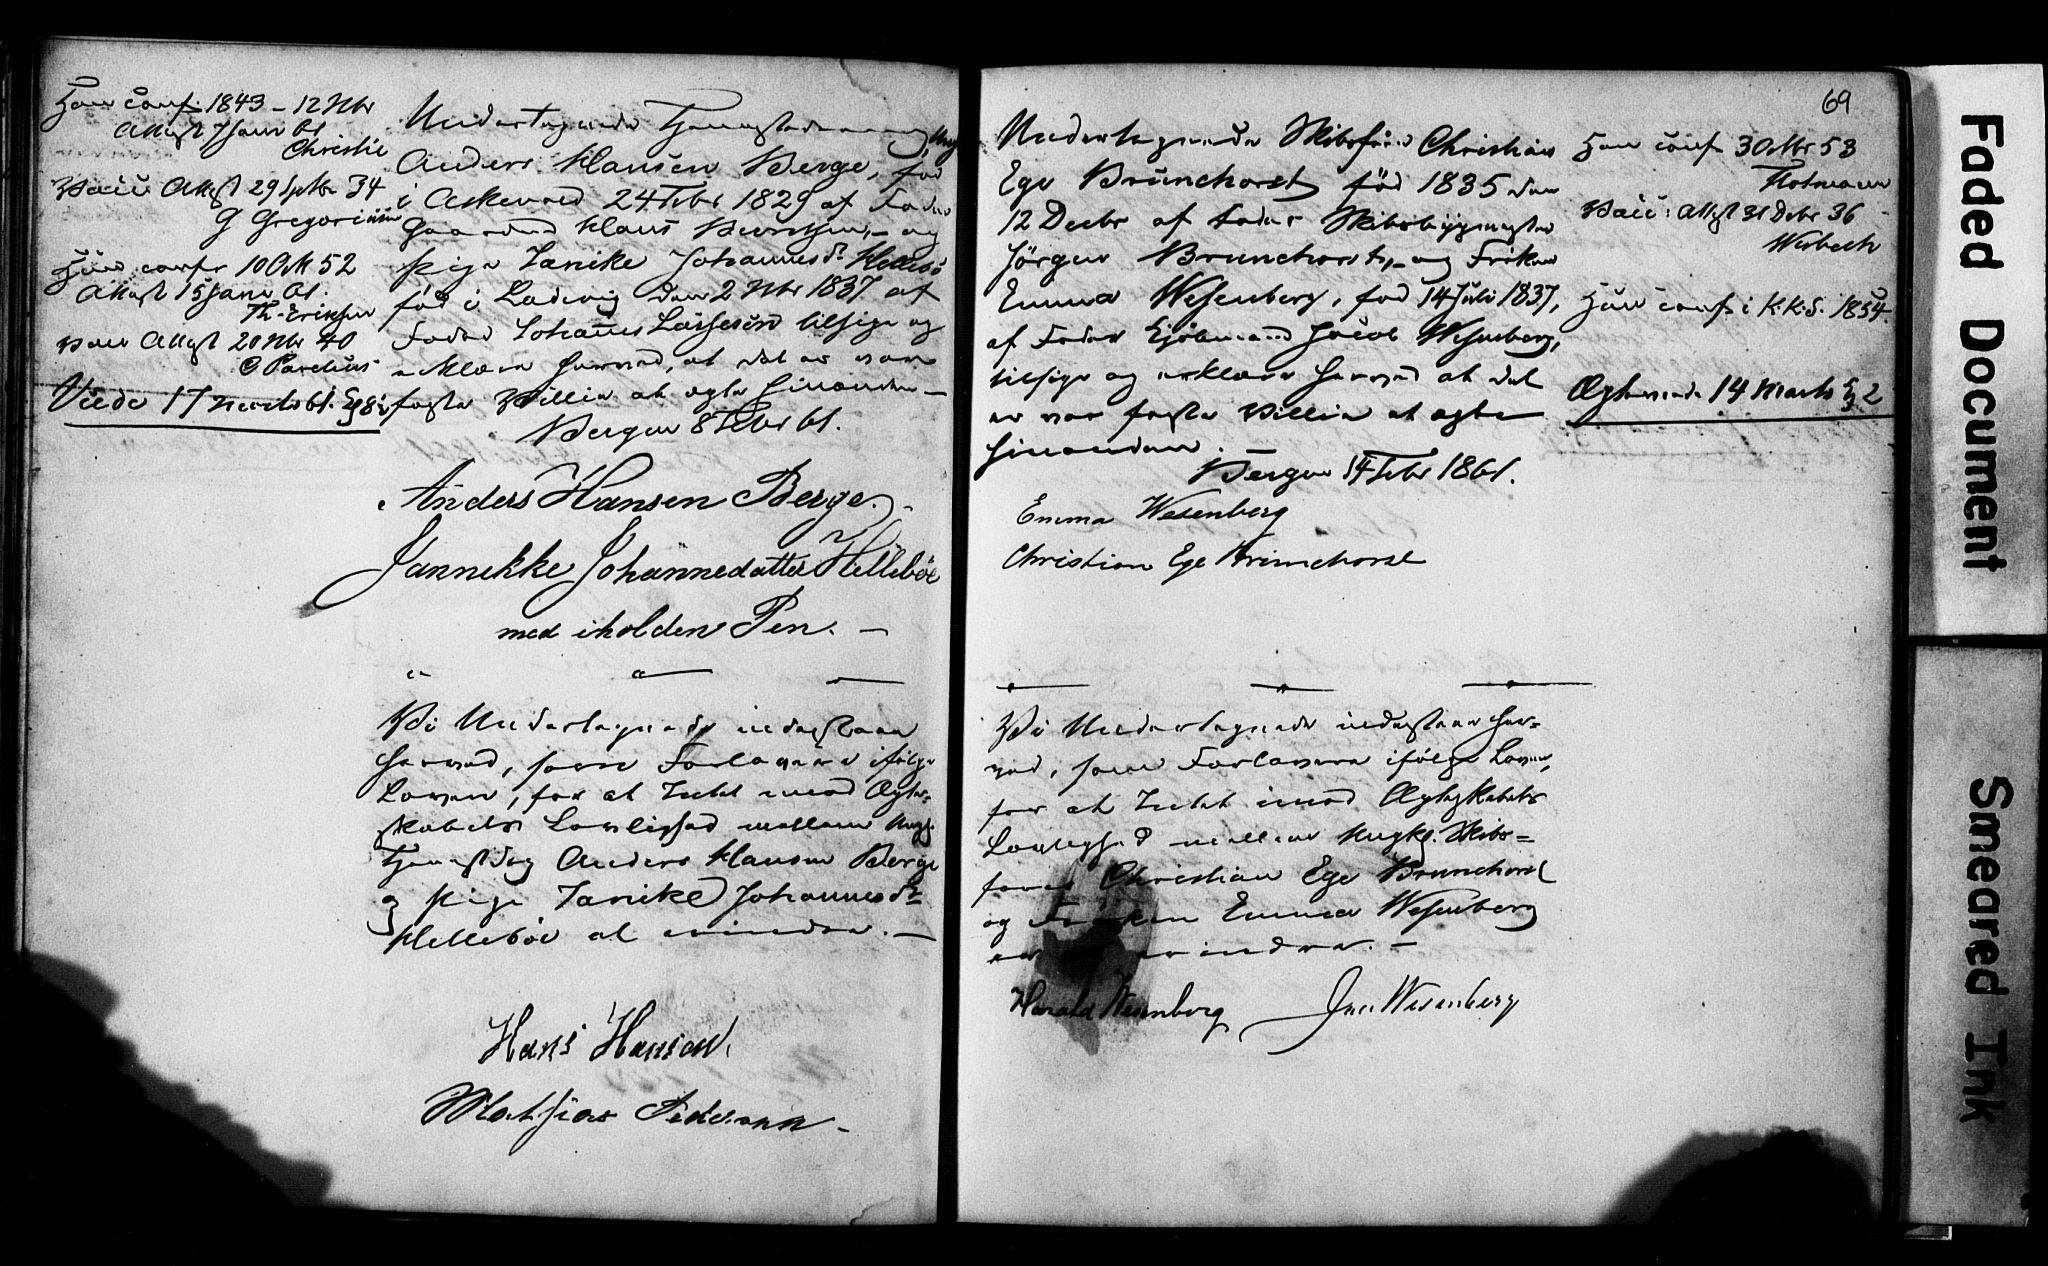 Han conf. 1843 – 12 Nbr
Attest 7 Janr 61
Christie
Vacc Attest 29 Septbr 34
G Gregorius
Hun confr 10 Oct 52
Attest 15 Janr 61.
Th. Eriksen
Vacc Attest 20 Nbr 40
C Parelius
Viede 17 Marts 61.
Undertegnede Tjenestedreng Ungk
Anders Hansen Berge, fød
i Askevold 24 Febr 1829 af Fader
Gaardmd Hans Berntsen, – og
Pige Janike Johannesdr Hellebø
fød i Ladvig den 2 Nbr 1837 af
Fader Johannes Lassesen tilsige og
erklære herved, at det er vor
faste Villie at ægte hinanden –
Bergen 8 Febr 61.
Anders Hansen Berge.
Jannekke Johannedatter Hellebøe
med iholden Pen. –
Vi Undertegnede indestaae
herved, som Forlovere ifølge
Loven, for at Intet imod Ægte-
skabets Lovlighed mellem Ungk.
Tjenestdrg Anders Hansen Berge
og Pige Janike Johannesdr
Hellebøe at erindre. –
Hans Hansen.
Mathias Pedersen –
69
Undertegnede Skibsfører Christian
Ege Brunchorst fød 1835 den
12 Decbr af Fader Skibsbygmester
Jørgen Brunchorst, – og Frøken
Emma Wesenberg, fød 14 Juli 1837,
af Fader Kjøbmand Jacob Wesenberg,
tilsige og erklære herved at det
er vor faste Villie at ægte
hinanden.
Bergen 14 Febr 1861.
Emma Wesenberg
Christian Ege Brunchorst
Vi Undertegnede indestaae her-
ved, som Forlovere ifølge Loven,
for at Intet imod Ægteskabets
Lovlighed mellem Ungk. Skibs-
fører Christian Ege Brunchorst
og Frøken Emma Wesenberg
er at erindre. –
Harald Wesenberg Jac Wesenberg
Han conf 3 Oktbr 53
Vacc: Attest 31 Decbr 36
Wisbech
Hun conf i K.K.S. 1854.
Ægteviede 14 Marts
Faded Document
Smeared Ink